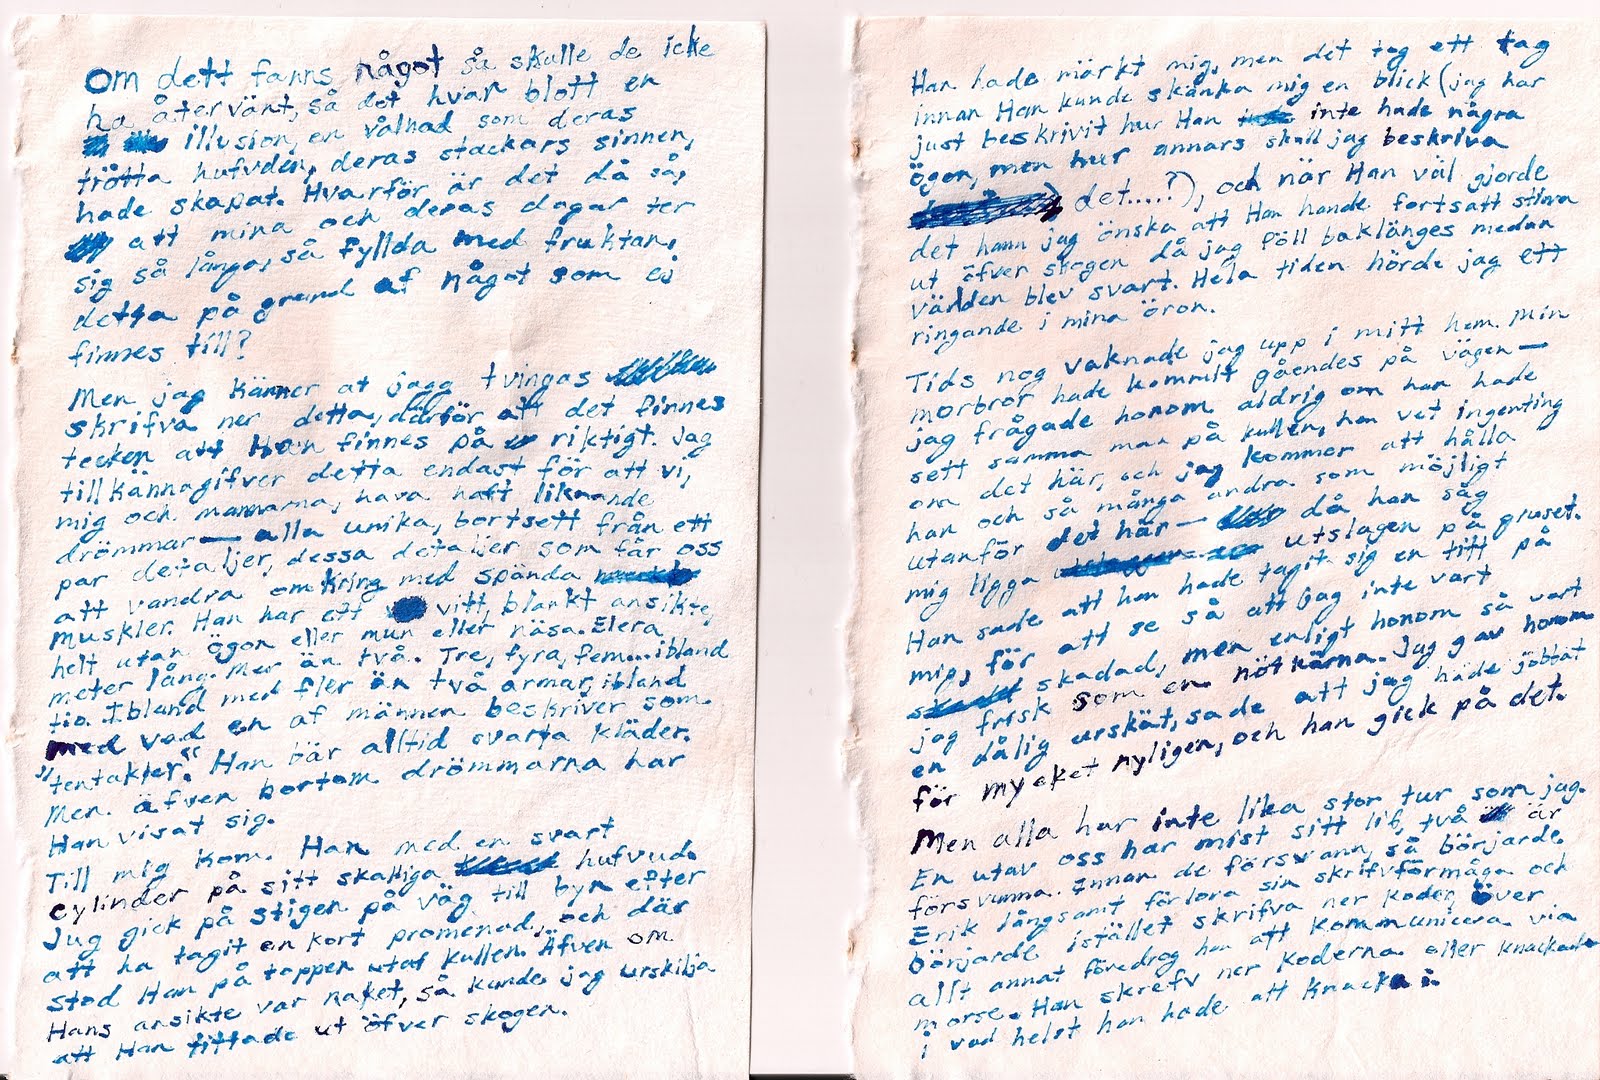 Om dett fanns något så skulle de icke
ha återvänt, så det hvar blott en
illusion, en vålnad som deras
trötta hufvden, deras stackars sinnen,
hade skapat. Hvarför är det då så,
att mina och deras dagar ter
sig så långa, så fyllda med fruktan,
detta på grund af något som ej
finnes till?
Men jag känner at jagg tvingas
skrifva ner detta, därför att det finnes
tecken att Han finnes på riktigt. Jag
tillkännagifver detta endast för att vi,
mig och mannarna, hava haft liknande
drömmar — alla unika, bortsett från ett
par detaljer, dessa detaljer som får oss
att vandra omkring med spända
muskler. Han har ett vitt, blankt ansikte,
helt utan ögon eller mun eller näsa. Flera
meter lång. Mer än två. Tre, fyra, fem... ibland
tio. Ibland med fler än två armar, ibland
med vad en af männen beskriver som
"tentakler". Han bär alltid svarta kläder.
Men äfven bortom drömmarna har
Han visat sig.
Till mig kom Han med en svart
cylinder på sitt skalliga hufvud.
Jag gick på stigen på väg till byn efter
att ha tagit en kort promenad, och där
stod Han på toppen utaf kullen. Äfven om
Hans ansikte var naket, så kunde jag urskilja
att Han tittade ut öfver skogen.
Han hade märkt mig, men det tog ett tag
innan Han kunde skänka mig en blick (jag har
just beskrivit hur Han inte hade några
ögon, men hur annars skall jag beskriva
det.....?), och när Han väl gjorde
det hann jag önska att Han hade fortsatt stirra
ut öfver skogen då jag föll baklänges medan
världen blev svart. Hela tiden hörde jag ett
ringande i mina öron.
Tids nog vaknade jag upp i mitt hem. Min
morbror hade kommit gåendes på vägen —
jag frågade honom aldrig om han hade
sett samma man på kullen, han vet ingenting
om det här, och jag kommer att hålla
han och så många andra som möjligt
utanför det här — då han såg
mig ligga utslagen på gruset.
Han sade att han hade tagit sig en titt på
mig, för att se så att jag inte vart
skadad, men enligt honom så vart
jag frisk som en nötkärna. Jag gav honom
en dålig urskät, sade att jag hade jobbat
för mycket nyligen, och han gick på det.
Men alla har inte lika stor tur som jag.
En utav oss har mist sitt lif, två är
försvunna. Innan de försvann, så börjarde
Erik långsamt förlora sin skrifvförmåga och
börjarde istället skrifva ner koder, över
allt annat föredrog han att kommunicera via
morse. Han skrefv ner koderna eller knackade
i vad helst han hade att knacka i.